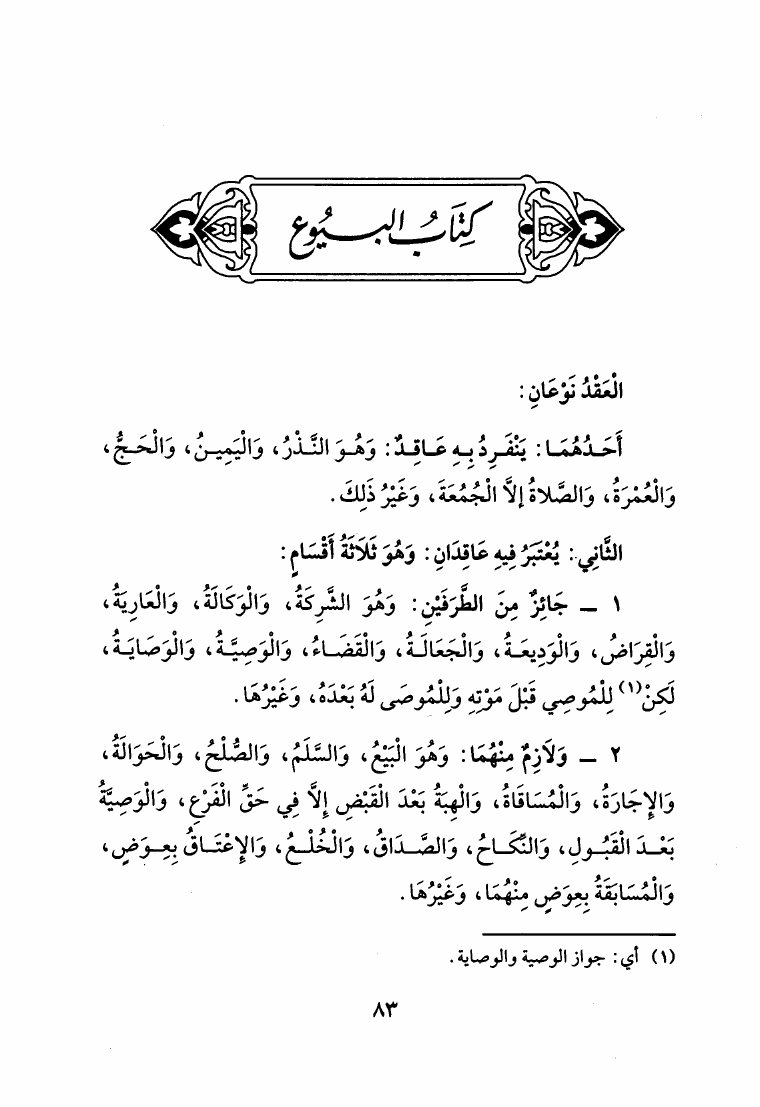 كِتَابُ البُيُوع
الْعَقْدُ نَوْعَانِ:
أَحَدُهُمَا: يَنْفَرِدُ بِهِ عَاقِدٌ: وَهُوَ النَّذْرُ، وَالْيَمِينُ، وَالْحَجُّ،
وَالْعُمْرَةُ، وَالصَّلاَةُ إِلاَّ الْجُمُعَةَ، وَغَيْرُ ذَلِكَ.
الثَّانِي: يُعْتَبَرُ فِيهِ عَاقِدَانِ: وَهُوَ ثَلاَثَةُ أَقْسَامٍ:
١ – جَائِزٌ مِنَ الطَّرَفَيْنِ: وَهُوَ الشَّرِكَةُ، وَالْوَكَالَةُ، وَالْعَارِيَةُ،
وَالْقِرَاضُ، وَالْوَدِيعَةُ، وَالْجَعَالَةُ، وَالْقَضَاءُ، وَالْوَصِيَّةُ، وَالْوَصَايَةُ،
لَكِنْ(١) لِلْمُوصِي قَبْلَ مَوْتِهِ وَلِلْمُوصَى لَهُ بَعْدَهُ، وَغَيْرُهَا.
٢ – وَلاَزِمٌ مِنْهُمَا: وَهُوَ الْبَيْعُ، وَالسَّلَمُ، وَالصُّلْحُ، وَالْحَوَالَةُ،
وَالإِجَارَةُ، وَالْمُسَاقَاةُ، وَالْهِبَةُ بَعْدَ الْقَبْضِ إِلاَّ فِي حَقِّ الْفَرْعِ، وَالْوَصِيَّةُ
بَعْدَ الْقَبُولِ، وَالنِّكَاحُ، وَالصَّدَاقُ، وَالْخُلْعُ، وَالإِعْتَاقُ بِعِوَضٍ،
وَالْمُسَابَقَةُ بِعِوَضٍ مِنْهُمَا، وَغَيْرُهَا.
(١) أي: جواز الوصية والوصاية.
٨٣